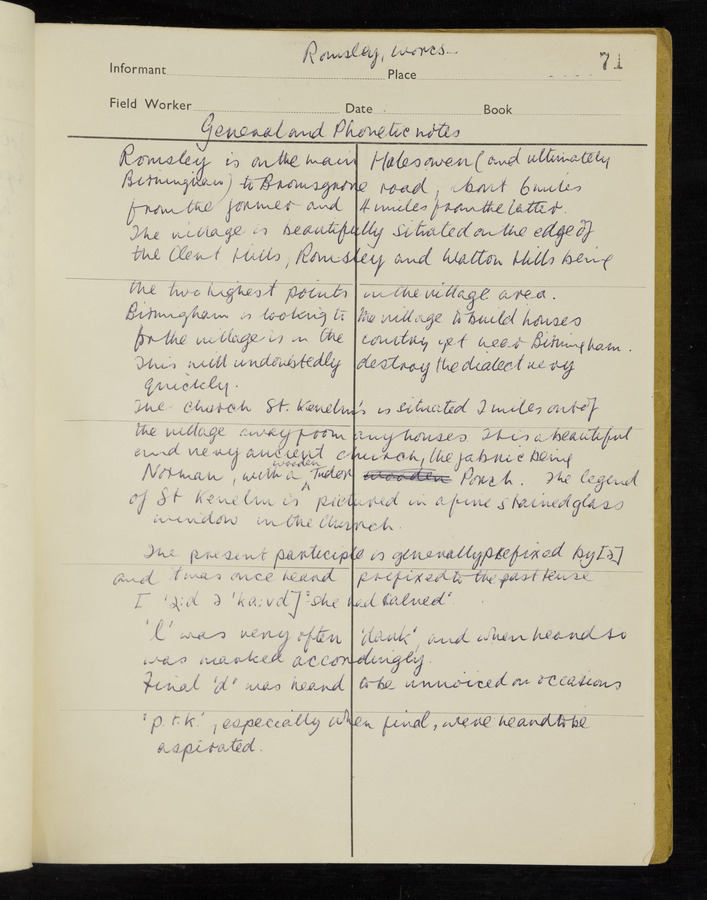 Romsley, Worcs.
71
Informant Place
Field Worker Date Book
General and Phonetic notes
Romsley is on the main Halesowen (and ultimately
Birmingham) to Bromsgrove road, about 6 miles
from the former and 4 miles from the latter.
The village is beautifully situated on the edge of
the Clent Hills, Romsley and Walton Hills being
the two highest points in the village area.
Birmingham is looking to the village to build houses
for the village is in the country yet near Birmingham.
This will undoubtedly destroy the dialect very
quickly.
The church St. Kenelm's is situated 2 miles out of
the village away from any houses. It is a beautiful
and very ancient church, the fabric being
Norman, with a wooden Tudor Porch. The legend
of St Kenelm is pictured in a fine stained glass
window in the Church.
The present participle is generally prefixed by [ə]
and 'twas once heard prefixed to the past tense
"she had calved".
'l' was very often 'dark', and when heard so
was marked accordingly.
Final 'd' was heard to be unvoiced on occasions
'p.t.k.', especially when final, were heard to be
aspirated.